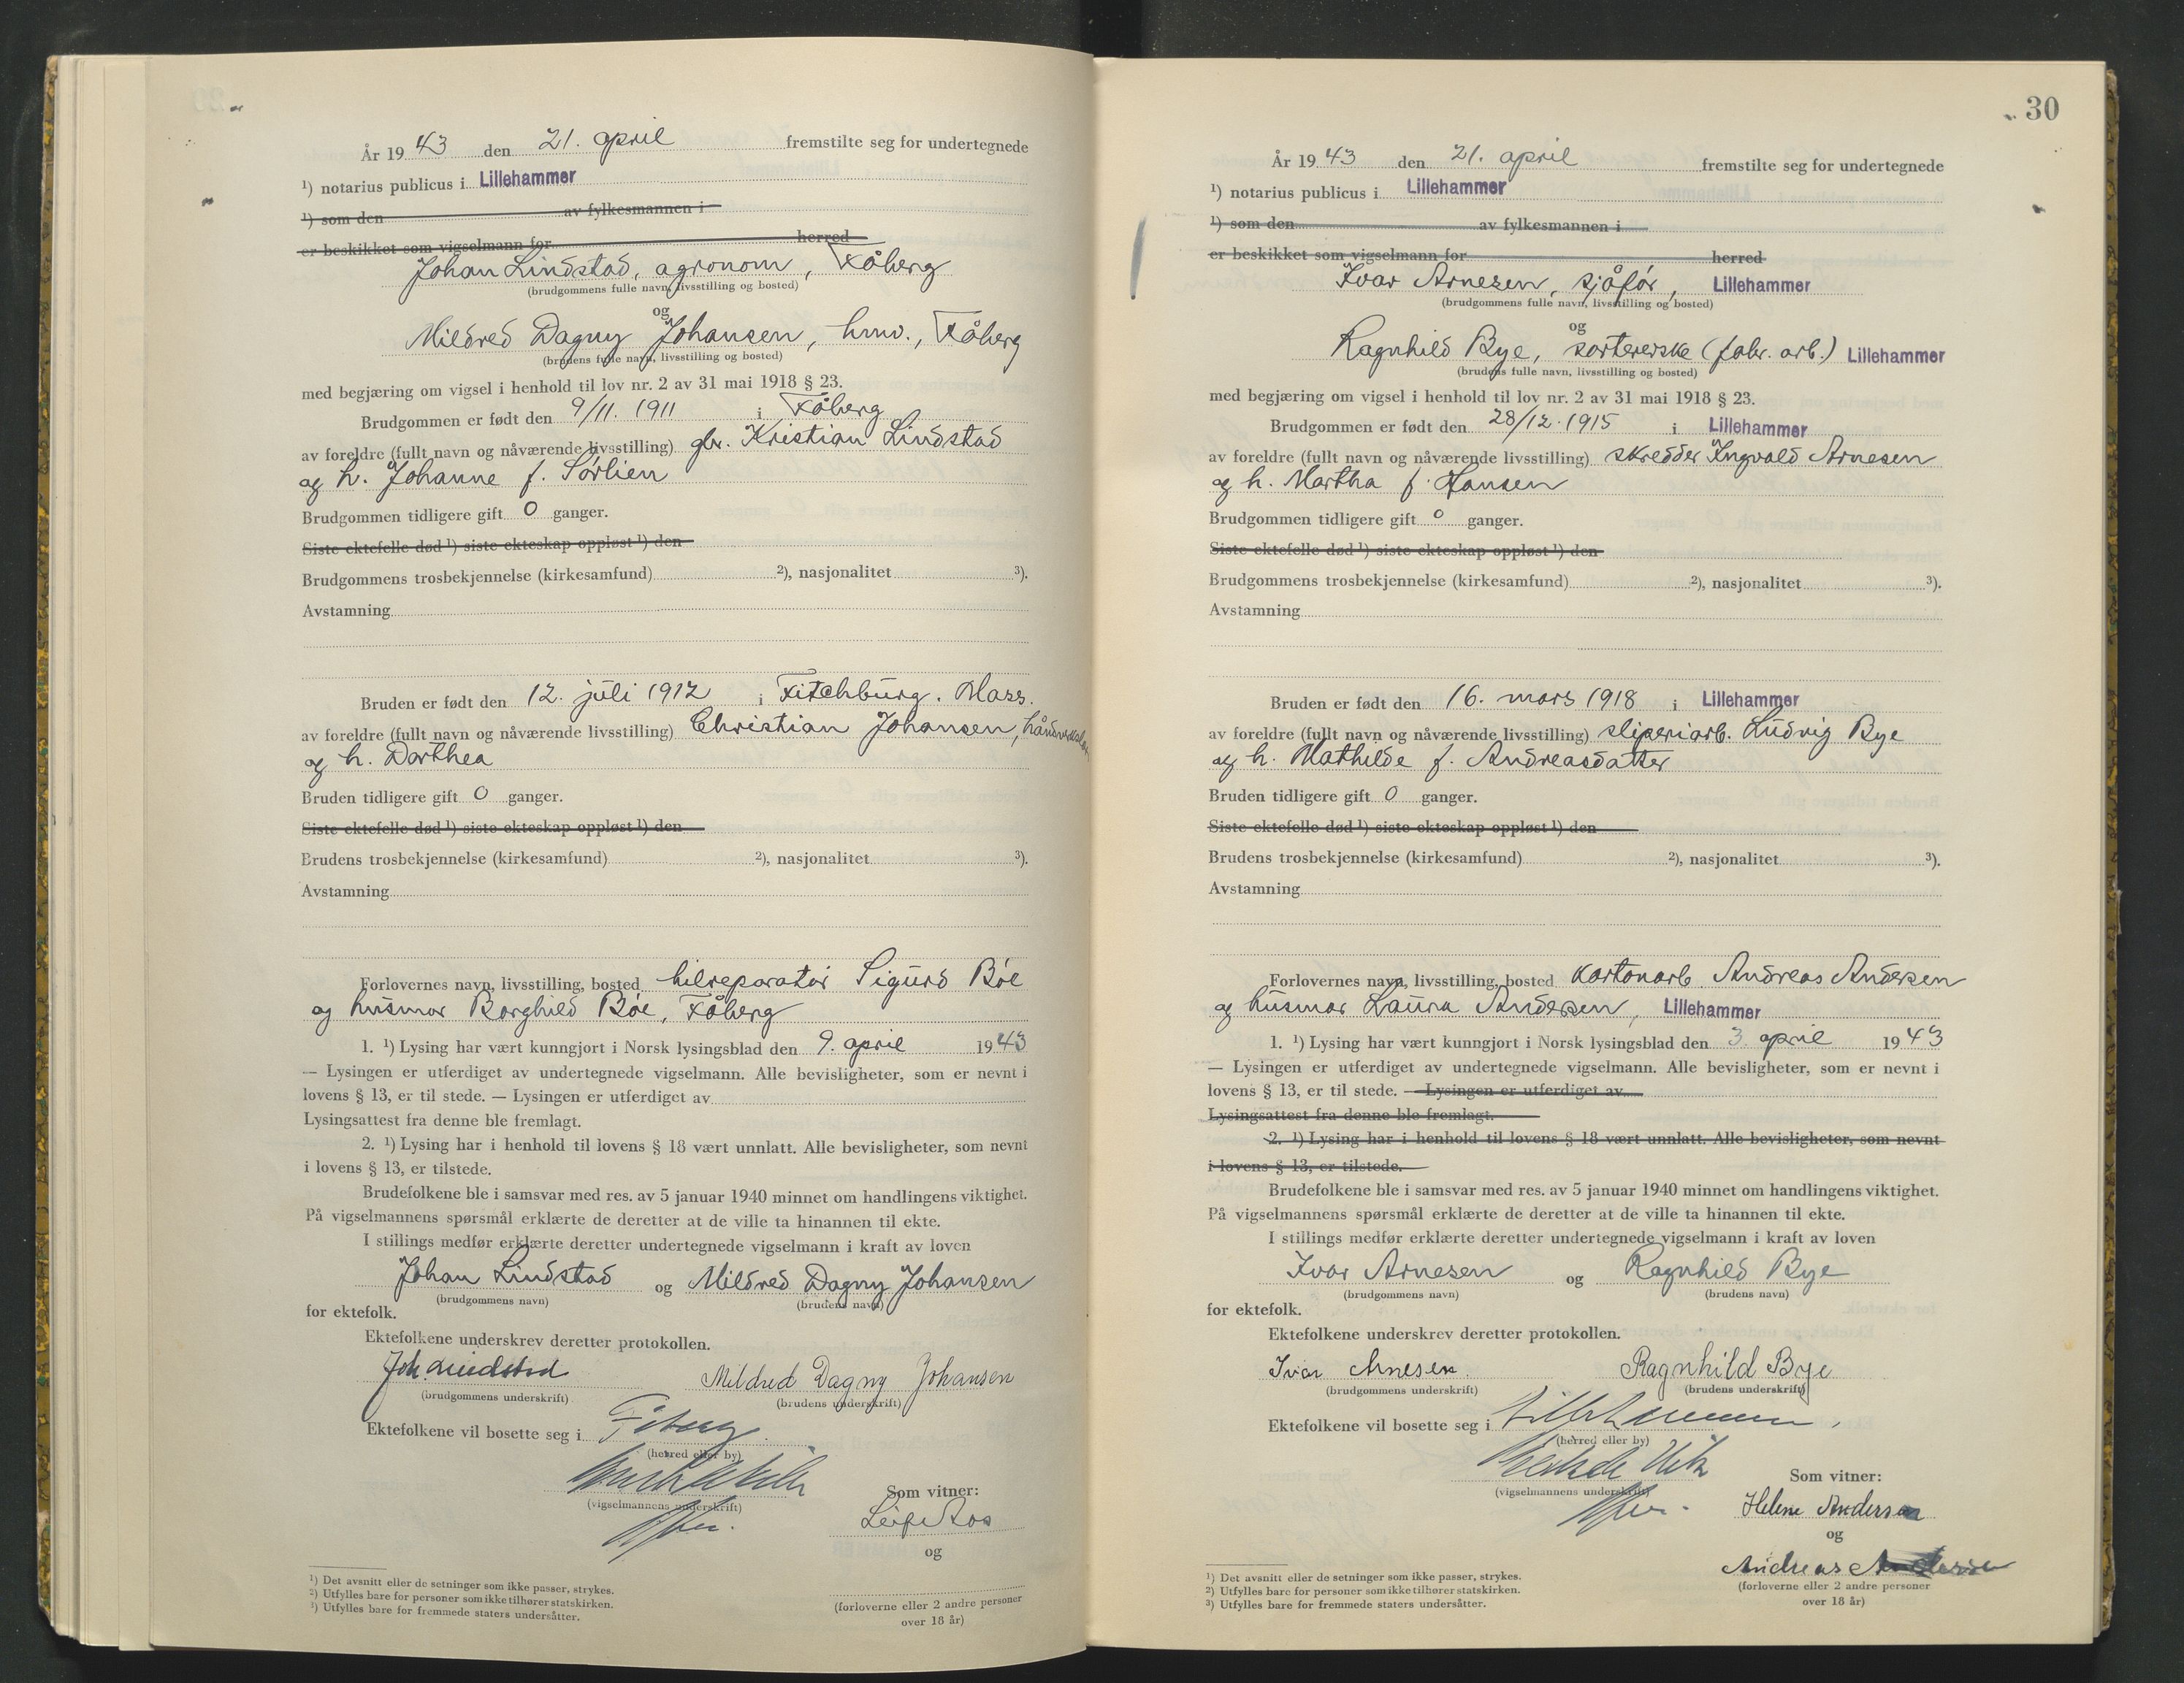 År 19 43 den 21. april fremstilte seg for undertegnede
¹) notarius publicus i Lillehammer
¹) som den av fylkesmannen i
er beskikket som vigselmann for herred
Johan Lindstad, agronom, Fåberg
(brudgommens fulle navn, livsstilling og bosted)
og
Mildred Dagny Johansen, hmv., Fåberg
(brudens fulle navn, livsstilling og bosted)
med begjæring om vigsel i henhold til lov nr. 2 av 31 mai 1918 § 23.
Brudgommen er født den 9/11. 1911 i Fåberg
av foreldre (fullt navn og nåværende livsstilling) gbr. Kristian Lindstad
og h. Johanne f. Sørlien
Brudgommen tidligere gift 0 ganger.
Siste ektefelle død ¹) siste ekteskap oppløst ¹) den
Brudgommens trosbekjennelse (kirkesamfund) ²), nasjonalitet ³).
Avstamning
Bruden er født den 12. juli 1912 i Fitchburg. Mass.
av foreldre (fullt navn og nåværende livsstilling) Christian Johansen, håndverker
og h. Dorthea
Bruden tidligere gift 0 ganger.
Siste ektefelle død ¹) siste ekteskap oppløst ¹) den
Brudens trosbekjennelse (kirkesamfund) ²), nasjonalitet ³).
Avstamning
Forlovernes navn, livsstilling, bosted bilreparatør Sigurd Bøe
og husmor Borghild Bøe, Fåberg
1. ¹) Lysing har vært kunngjort i Norsk lysingsblad den 9. april 19 43
— Lysingen er utferdiget av undertegnede vigselmann. Alle bevisligheter, som er nevnt i
lovens § 13, er til stede. — Lysingen er utferdiget av
Lysingsattest fra denne ble fremlagt.
2. ¹) Lysing har i henhold til lovens § 18 vært unnlatt. Alle bevisligheter, som nevnt
i lovens § 13, er tilstede.
Brudefolkene ble i samsvar med res. av 5 januar 1940 minnet om handlingens viktighet.
På vigselmannens spørsmål erklærte de deretter at de ville ta hinannen til ekte.
I stillings medfør erklærte deretter undertegnede vigselmann i kraft av loven
Johan Lindstad og Mildred Dagny Johansen
(brudgommens navn) (brudens navn)
for ektefolk.
Ektefolkene underskrev deretter protokollen.
Joh. Lindstad Mildred Dagny Johansen
(brudgommens underskrift) (brudens underskrift)
Ektefolkene vil bosette seg i Fåberg
(herred eller by)
(vigselmannens underskrift)
Som vitner:
Leif Aas
og
(forloverne eller 2 andre personer
over 18 år)
¹) Det avsnitt eller de setninger som ikke passer, strykes.
²) Utfylles bare for personer som ikke tilhører statskirken.
³) Utfylles bare for fremmede staters undersåtter.
30
År 19 43 den 21. april fremstilte seg for undertegnede
¹) notarius publicus i Lillehammer
¹) som den av fylkesmannen i
er beskikket som vigselmann for herred
Ivar Arnesen, sjåfør, Lillehammer
(brudgommens fulle navn, livsstilling og bosted)
og
Ragnhild Bye, sortererske (fabr. arb.) Lillehammer
(brudens fulle navn, livsstilling og bosted)
med begjæring om vigsel i henhold til lov nr. 2 av 31 mai 1918 § 23.
Brudgommen er født den 28/12. 1915 i Lillehammer
av foreldre (fullt navn og nåværende livsstilling) skredder Ingvald Arnesen
og h. Martha f. Hansen
Brudgommen tidligere gift 0 ganger.
Siste ektefelle død ¹) siste ekteskap oppløst ¹) den
Brudgommens trosbekjennelse (kirkesamfund) ²), nasjonalitet ³).
Avstamning
Bruden er født den 16. mars 1918 i Lillehammer
av foreldre (fullt navn og nåværende livsstilling) sliperiarb. Ludvig Bye
og h. Mathilde f. Andreasdatter
Bruden tidligere gift 0 ganger.
Siste ektefelle død ¹) siste ekteskap oppløst ¹) den
Brudens trosbekjennelse (kirkesamfund) ²), nasjonalitet ³).
Avstamning
Forlovernes navn, livsstilling, bosted kartonarb. Andreas Andersen
og husmor Laura Andersen, Lillehammer
1. ¹) Lysing har vært kunngjort i Norsk lysingsblad den 3. april 19 43
— Lysingen er utferdiget av undertegnede vigselmann. Alle bevisligheter, som er nevnt i
lovens § 13, er til stede. — Lysingen er utferdiget av
Lysingsattest fra denne ble fremlagt.
2. ¹) Lysing har i henhold til lovens § 18 vært unnlatt. Alle bevisligheter, som nevnt
i lovens § 13, er tilstede.
Brudefolkene ble i samsvar med res. av 5 januar 1940 minnet om handlingens viktighet.
På vigselmannens spørsmål erklærte de deretter at de ville ta hinannen til ekte.
I stillings medfør erklærte deretter undertegnede vigselmann i kraft av loven
Ivar Arnesen og Ragnhild Bye
(brudgommens navn) (brudens navn)
for ektefolk.
Ektefolkene underskrev deretter protokollen.
Ivar Arnesen. Ragnhild Bye
(brudgommens underskrift) (brudens underskrift)
Ektefolkene vil bosette seg i Lillehammer.
(herred eller by)
(vigselmannens underskrift)
Som vitner:
Helene Andersen
og
Andreas Andersen
(forloverne eller 2 andre personer
over 18 år)
¹) Det avsnitt eller de setninger som ikke passer, strykes.
²) Utfylles bare for personer som ikke tilhører statskirken.
³) Utfylles bare for fremmede staters undersåtter.